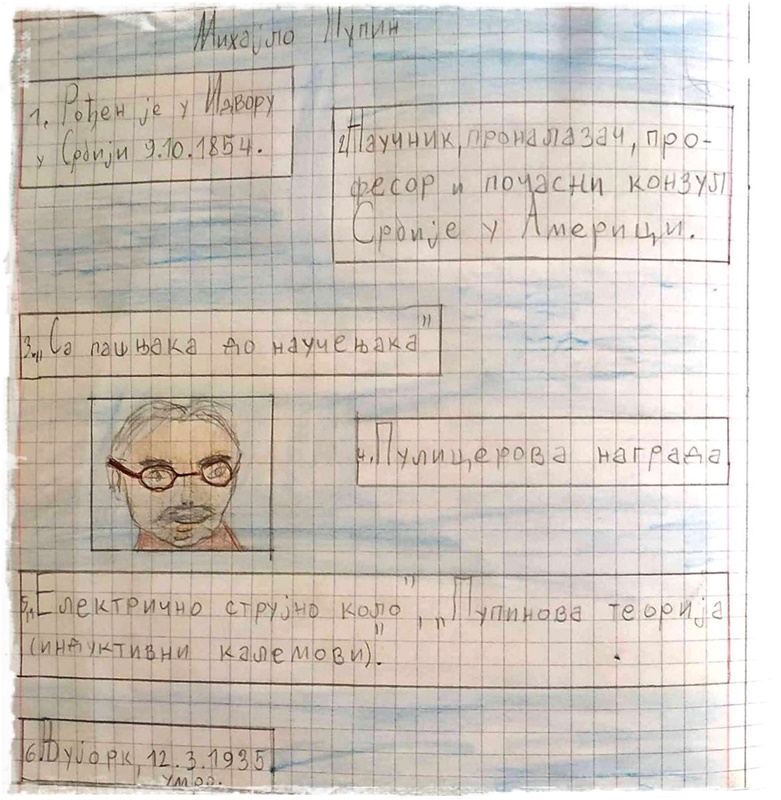 Михајло Пупин
1. Рођен је у Идвору
у Србији 9.10.1854.
2. Научник, проналазач, про-
фесор и почасни конзул
Србије у Америци.
3. „Са пашњака до научењака”
4. Пулицерова награда
5. „Електрично струјно коло”, „Пупинова теорија
(индуктивни калемови)”.
6. Њујорк, 12.3.1935
умро.